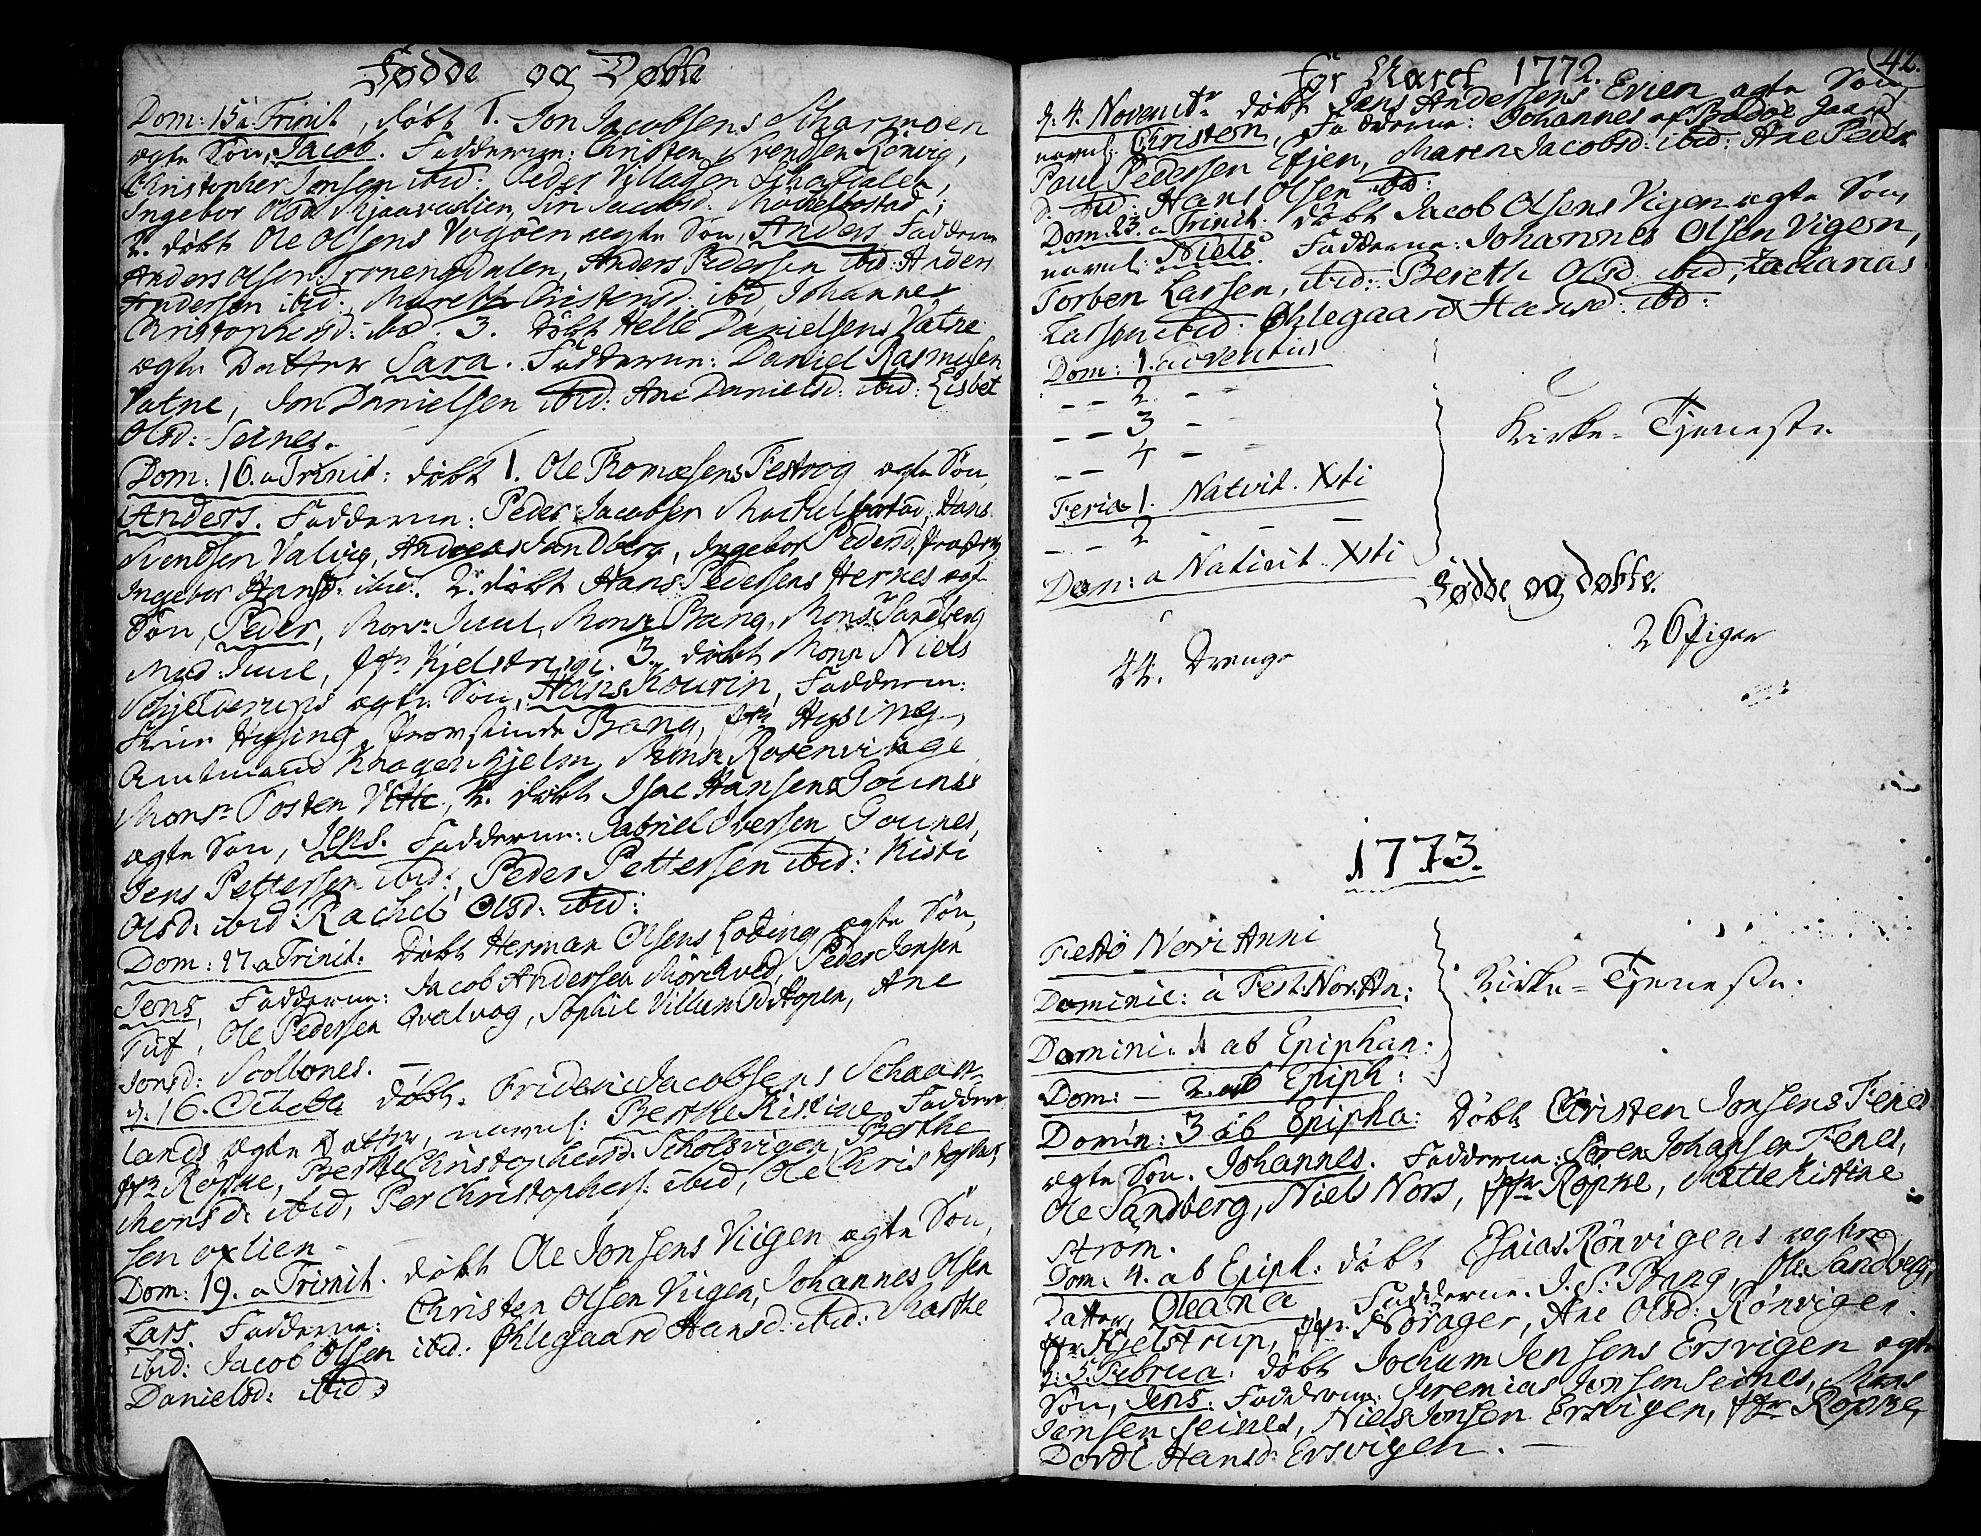 Fødde og Døbte
Dom: 15 a Trinit, døbt 1. Jon Jacobsens Scharmoen
ægte Søn, Jacob. Fadderne: Christen Svendsen Rönvig,
Christopher Jonsen ibid: Peder
Ingebor Olsd Siri Jacobsd:
2. døbt Ole Olsens Vogöen ægte Søn, Anders Fadderne
Anders Olsen Tronengdalen, Anders Pedersen ibid: Anders
Andersen ibid: Mareth Christensd. ibd Johannes
Christophersd: ibd. 3. døbt Helle Danielsens Vatne
ægte Datter Sara. Fadderne: Daniel Rasmusen
Vatne, Jon Danielsen ibid: Ane Danielsd: ibid: Lisbet
Olsd: Seines.
Dom: 16. a Trinit: døbt 1. Ole Thomæsens Festvog ægte Søn,
Anders. Fadderne: Peder Jacobsen Hans
Svendsen Valvig, Andreas Sandberg, Ingebor Pedersd.
Ingebor Hansd: ibid: 2. døbt Hans Pedersens Hernes ægt
Søn, Peder, Monsr Juul, Monsr Bang, Monsr Sandberg
Mad: Juul, Jfr Kjelstrup. 3. døbt Monsr Niels
Schjelderups ægte Søn, Hans Kourin, Fadderne:
Frue Hysing, Provstinde Bang, Jfr Hysing,
Amtmand Knagenhjelm, Monsr Rosenvinge
Monsr Tosten Vitte, 4. døbt Isac Hansens Gounes
ægte Søn, Jens. Fadderne: Gabriel Iversen Gounes,
Jens Pettersen ibid:, Peder Pettersen ibid: Kisti
Olsd: ibid: Rachel Olsd: ibid:
Dom: 17. a Trinit: døbt Herman Olsens Loding ægte Søn,
Jens, Fadderne: Jacob Andersen Mörchved, Peder Jensen
Tuf, Ole Pedersen Qvalvog, Sophie Villumsd Hopen, Ane
Jonsd: Scolbones.
d. 16. Octobr døbt. Frideric Jacobsens Schaan-
lands ægte Datter, navnl: Berthe Kistine Fadderne
Jfr Röpke, Berthe Christophersd: Scholsvigen, Berthe
Monsd: ibid, Per Christophers: ibid, Ole Christopher
sen oxlien.
Dom: 19. a Trinit. døbt Ole Jonsens Viigen ægte Søn,
Lars. Fadderne: Christen Olsen Viigen, Johannes Olsen
ibid: Jacob Olsen ibid: Øhlegaard Hansd: ibid: Marthe
Danielsd: ibid:
42.
for Aaret 1772.
d. 4. Novembr døbt Jens Andersens Evien ægte Søn,
navnl: Christen, Fadderne: Johannes af Bodöe Gaard,
Paul Pedersen Efjen, Maren Jacobsd: ibid: Ane Peder
d. ibid: Hans Olsen ibd:
Dom: 23. a Trinit. døbt Jacob Olsens Vigen ægte Søn,
navnl: Niels. Fadderne: Johannes Olsen Vigen,
Torben Larsen, ibid: Bereth Olsd ibid, Zacharias
Larsen ibid. Øhlegaard Hansd: ibd:
Dom: 1. adventus
– – 2 – –
– – 3 –
– – 4 – –
Feria 1. Nativit. Xsti
– – 2 – –
Dom: a Nativit. Xsti
Kirke-Tjeneste
Fødde og døbte.
44. Drenge
26 piger
1773.
Festo Novi Anni
Dominic: a Fest. Nov. An:
Domini. 1 ab Epiphan:
Dom: – 2. ab Epiph:
Kirke-Tjeneste.
Domin: 3 ab Epipha: døbt Christen Jonsens Fenes
ægte Søn. Johannes. Fadderne: Sören Johansen Fenes,
Ole Sandberg, Niels Nors, Jfr Röpke, Mette Kistine
Ström.
Dom: 4. ab Epiph: døbt Esaias Rönvigens ægte
Datter, Oleana, Fadderne. J. S. Bang, Ole Sandberg,
Jfr Kjelstrup, Jfr. Norager, Ane Olsd: Rönvigen.
d: 5 Februa: døbt Jochum Jensens Ersvigen ægte
Søn, Jens: Fadderne: Jeremias Jonsen Seines, Mons
Jensen Seines, Niels Jonsen Ersvigen, Jfr Röpke,
Dordi Hansd: Ersvigen.